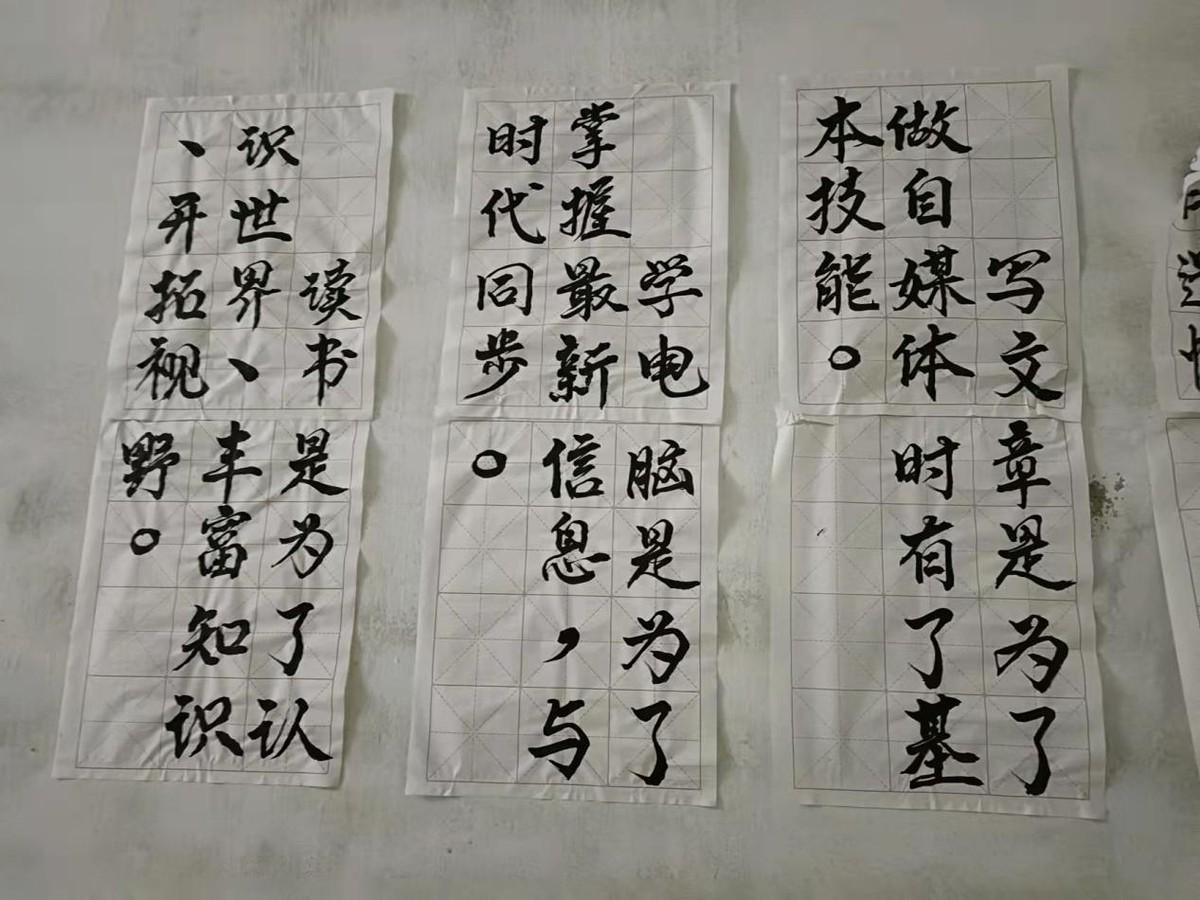 写文章是为了
做自媒体时有了基
本技能。
学电脑是为了
掌握最新信息，与
时代同步。
读书是为了认
识世界、丰富知识
、开拓视野。